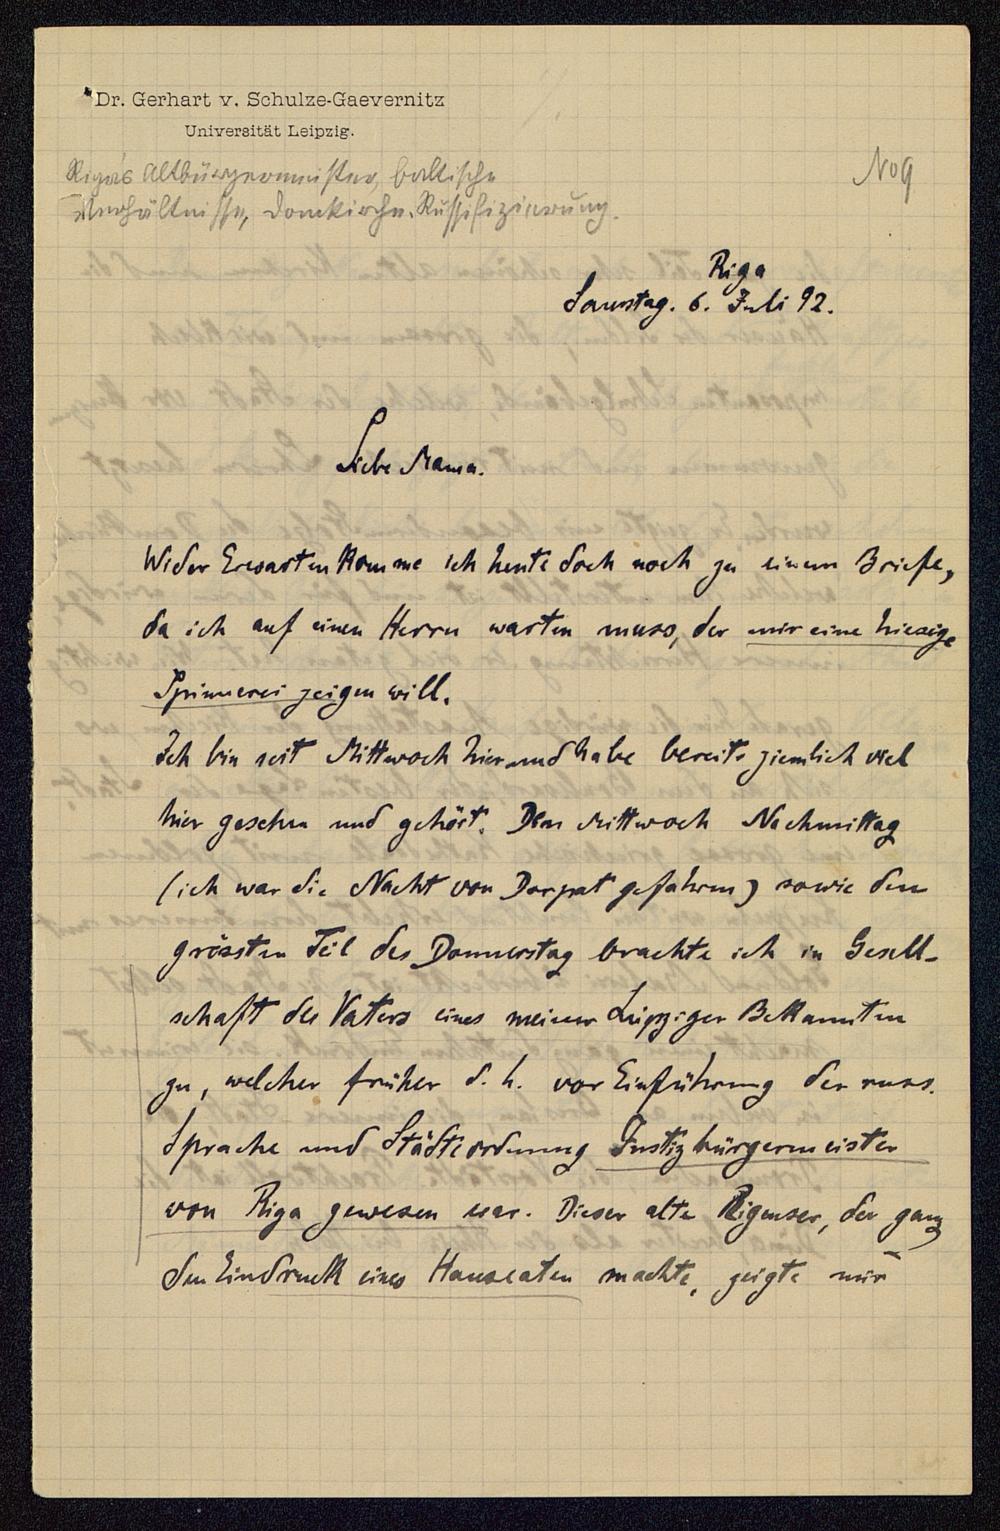 Dr. Gerhart v. Schulze-Gaevernitz
Universität Leipzig.
Riga's Altbürgermeister, baltische
Verhältnisse, Domkirche. Russifizierung.
No 9
Riga
Samstag. 6. Juli 92.
Liebe Mama.
Wider Erwarten komme ich heute doch noch zu einem Briefe,
da ich auf einen Herrn warten muss, der mir eine hiesige
Spinnerei zeigen will.
Ich bin seit Mittwoch hier und habe bereits ziemlich viel
hier gesehen und gehört. Den Mittwoch Nachmittag
(ich war die Nacht von Dorpat gefahren) sowie den
grössten Teil des Donnerstag brachte ich in Gesell-
schaft des Vaters eines meiner Leipziger Bekannten
zu, welcher früher d. h. vor Einführung der russ.
Sprache und Städteordnung Justizbürgermeister
von Riga gewesen war. Dieser alte Rigenser, der ganz
den Eindruck eines Hanseaten machte, zeigte mir